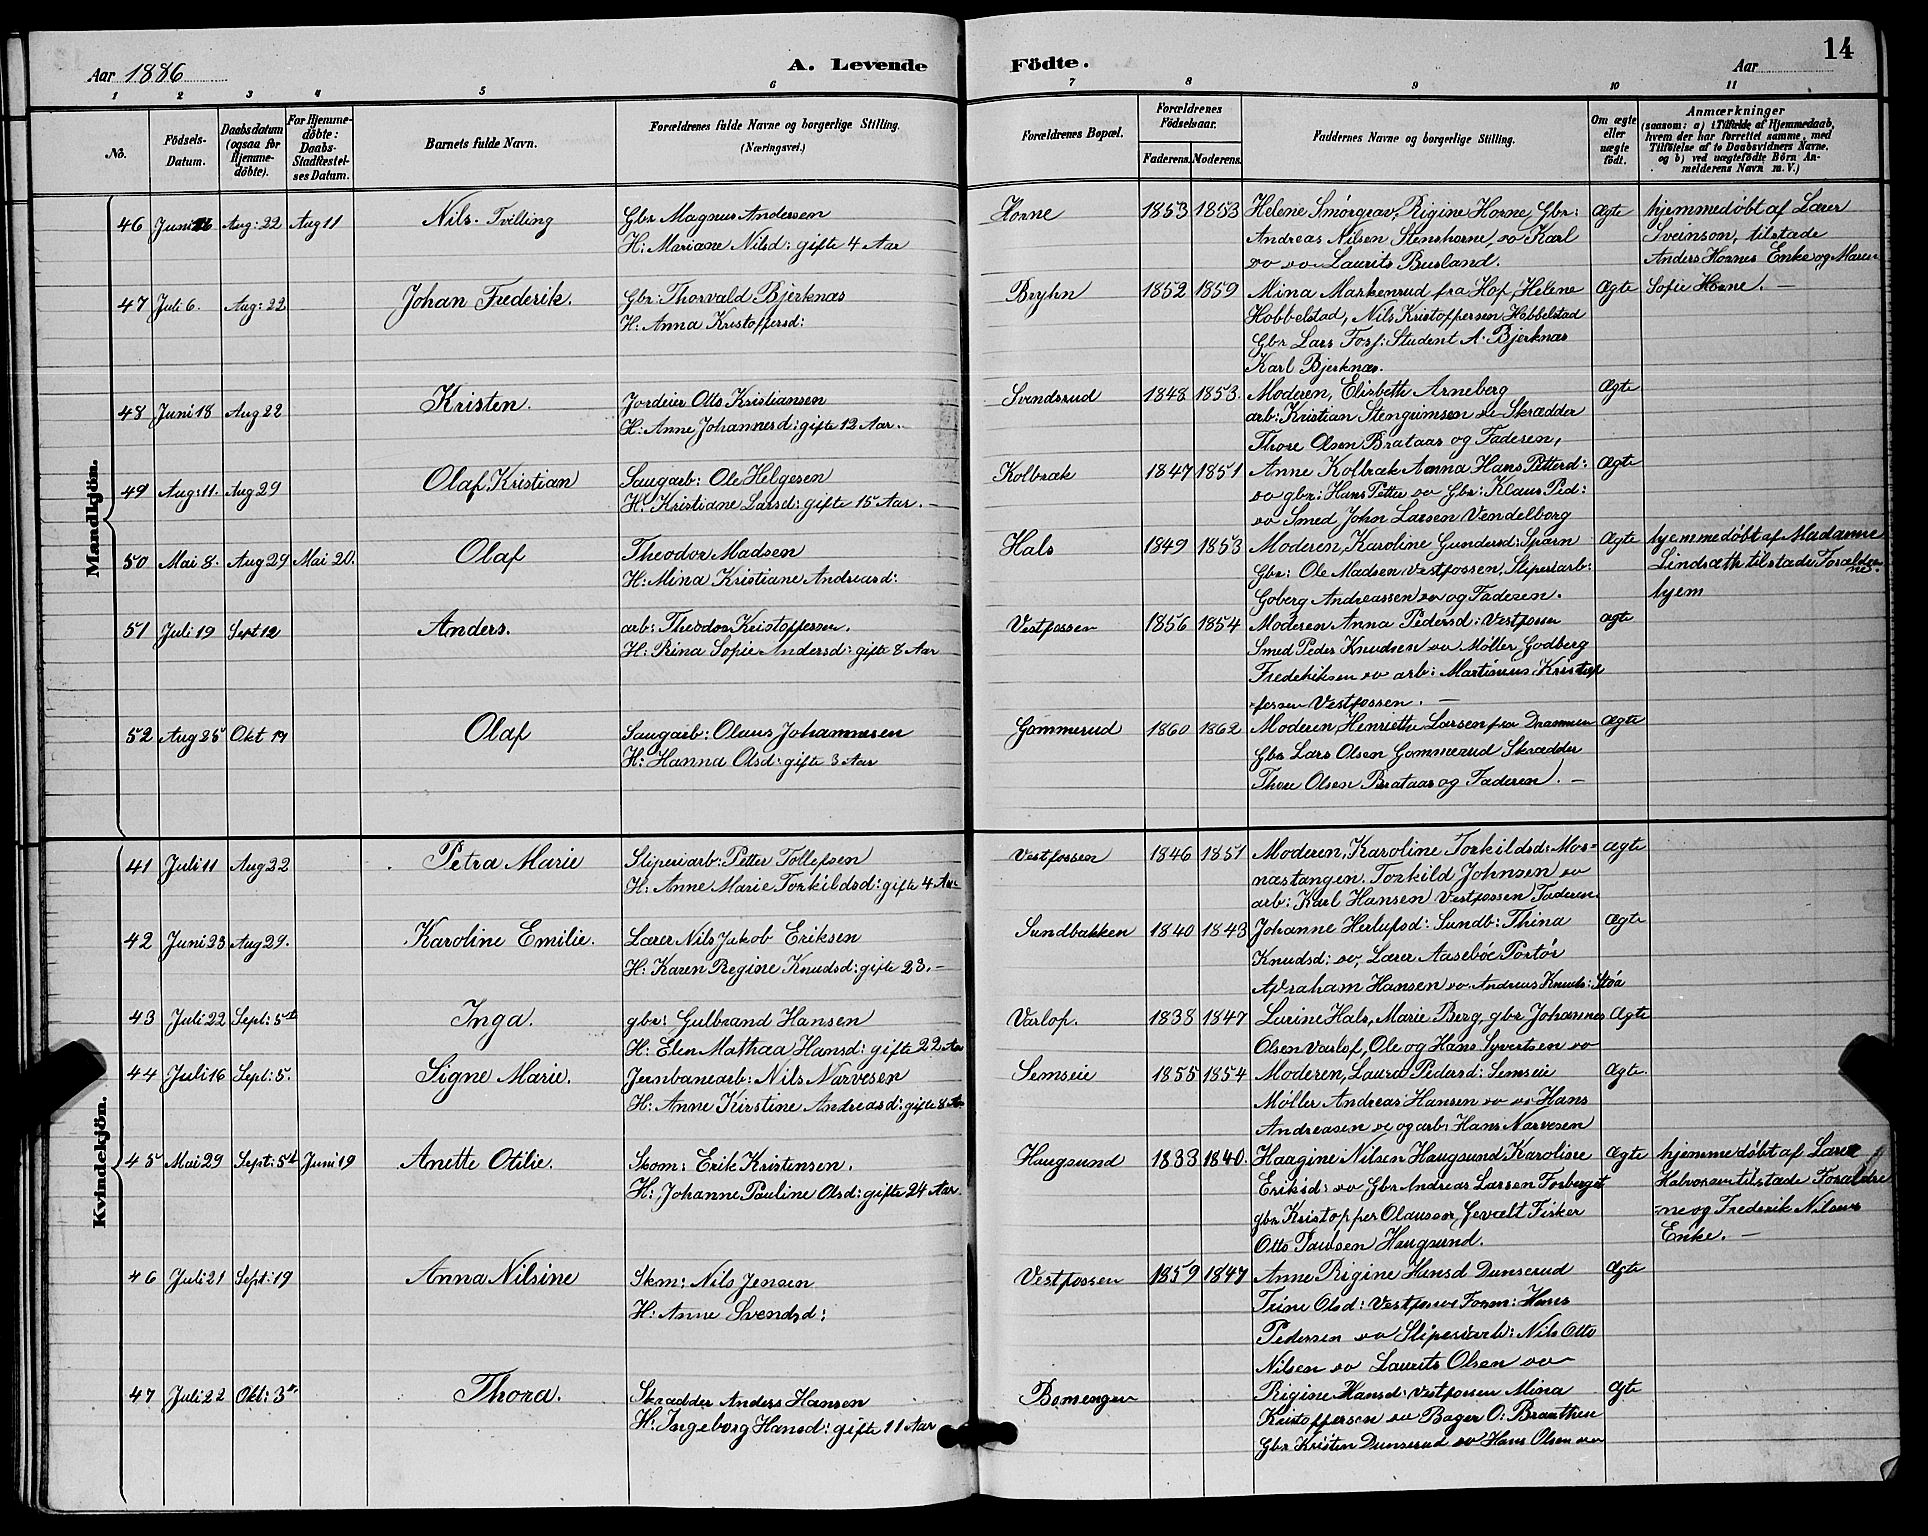 14
Aar 1886
A. Levende
Födte.
Aar
1 2 3 4 5 6 7 8 9 10 11
No.
Födsels-
Datum.
Daabsdatum
(ogsaa for
Hjemme-
döbte).
For Hjemme-
döbte:
Daabs-
Stadfæstel-
ses Datum.
Barnets fulde Navn.
Forældrenes fulde Navne og borgerlige Stilling.
(Næringsvei.)
Forældrenes Bopæl.
Forældrenes
Födselsaar.
Faderens. Moderens.
Faddernes Navne og borgerlige Stilling.
Om ægte
eller
uægte
födt.
Anmærkninger
(saasom: a) i Tilfælde af Hjemmedaab,
hvem der har forrettet samme, med
Tilföielse af to Daabsvidners Navne,
og b) ved uægtefödte Börn An-
melderens Navn m. V.)
Mandkjön.
46 Juni Aug: 22 Aug 11 Nils. Tvilling Gbr Magnus Andersen Horne 1853 1853 Helene Smörgrav, Rigine Horne, Gbr: Ægte hjemmedöbt af Lærer
H: Mariane Nilsd: gifte 4 Aar Andreas Nilsen Stenshorne, do Karl Sveinson, tilstæde
do do Laurits Busland. Anders Hornes Enke og Maren
47 Juli 6. Aug: 22 Johan Frederik. Gbr: Thorvald Bjerknæs Bryhn 1852 1859 Mina Markenrud fra Hof, Helene Ægte Sofie Horne. —
H: Anna Kristoffersd: Hobbelstad, Nils Kristoffersen Hobbelstad
Gbr Lars Foss: Student A. Bjerknæs
Karl Bjerknæs.
48 Juni 18 Aug 22 Kristen. Jordeier Otto Kristiansen Svendsrud 1848 1853. Moderen, Elisbeth Arneberg Ægte
H: Anne Johannesd: gifte 12 Aar. arb: Kristian Stengrimsen do Skrædder
Thore Olsen Brataas og Faderen,
49 Aug: 11. Aug 29 Olaf Kristian Saugarb: Ole Helgesen Kolbræk 1847 1851 Anne Kolbræk Anna Hans Petterd: Ægte
H: Kristiane Larsd: gifte 15 Aar. — do gbr: Hans Petter do Gbr: Klaus Ped:
do Smed John Larsen Vendelborg
50 Mai 8. Aug 29 Mai 20. Olaf Theodor Madsen Hals 1849 1853 Moderen, Karoline Gundersd: Sparn Ægte hjemmedöbt af Madame
H: Mina Kristiane Andreasd: Gbr: Ole Madsen Vestfossen, Sliperiarb: Lindsæth tilstæde Forældre
ne
Goberg Andreassen do og Faderen. hjem
51 Juli 19 Sept 12 Anders. arb: Theodor Kristoffersen. Vestfossen 1856 1854 Moderen Anna Pedersd: Vestfossen ægte
H: Rina Sofie Andersd: gifte 8 Aar Smed Peder Knudsen do Möller Godberg
Frederiksen do arb: Martinius Kristof
fersen Vestfossen. —
52 Aug 25 Okt 17 Olaf Saugarb: Olaus Johannesen Gommerud 1860 1862 Moderen, Henriette Larsen fra Drammen Ægte
H: Hanna Olsd: gifte 3 Aar Gbr Lars Olsen Gommerud Skrædder
Thore Olsen Brataas og Faderen. —
Kvindekjön.
41 Juli 11 Aug 22 Petra Marie Sliperiarb: Petter Tollefsen Vestfossen 1846 1851 Moderen, Karoline Torkildsd: Mor- ægte
H: Anne Marie Torkildsd: gifte 4 Aar næstangen. Torkild Johnsen do
arb: Karl Hansen Vestfossen Faderen
42 Juni 23 Aug 29. Karoline Emilie. Lærer Nils Jakob Eriksen Sundbakken 1840 1843 Johanne Herlufsd: Sundb: Thina Ægte
H: Karen Regine Knudsd: gifte 23. — Knudsd: do, Lærer Aaseböe Portör
Abraham Hansen do Andreas Knuds: Stöa
43 Juli 22 Sept: 5te Inga. gbr: Gulbrand Hansen Varlof. 1838 1847 Lurine Hals, Marie Berg, gbr Johannes Ægte
H: Elen Mathea Hansd: gifte 22 Aar Olsen Varlof, Ole og Hans Syvertsen do
44 Juli 16 Sept: 5. Signe Marie. Jernbanearb: Nils Narvesen Semseie 1855 1854 Moderen, Laura Pedersd: Semseie Ægte.
H: Anne Kirstine Andreasd: gifte 8 Aar Möller Andreas Hansen do do Hans
Andreasen do og arb: Hans Narvesen
45 Mai 29 Sept: 5te Juni 19 Anette Otilie. Skom: Erik Kristensen. Haugsund 1833 1840. Haagine Nilsen Haugsund Karoline Ægte hjemmedöbt af Lærer
H: Johanne Pauline Olsd: gifte 24 Aar. Eriksd: do Gbr Andreas Larsen Forberget Halvorsen tilstæde Forældre
gbr Kristoffer Olaussen, Gevælt Fisker ne og Frederik Nilsens
Otto Paulsen Haugsund. Enke. —
46 Juli 21 Sept: 19 Anna Nilsine Skm: Nils Jensen Vestfossen 1859 1847 Anne Rigine Hansd Dunserud Ægte
H: Anne Svendsd: Trine Olsd: Vestfossen Form: Hans
Pedersen do Sliperiarb: Nils Otto
Nilsen do Laurits Olsen do
47 Juli 22 Okt: 3de Thora. Skrædder Anders Hansen Bomengen Rigine Hansd: Vestfossen Mina Ægte
H: Ingeborg Hansd: gifte 11 Aar Kristoffersen do Bager O: Braathen
Gbr Kristen Dunserud do Hans Olsen do